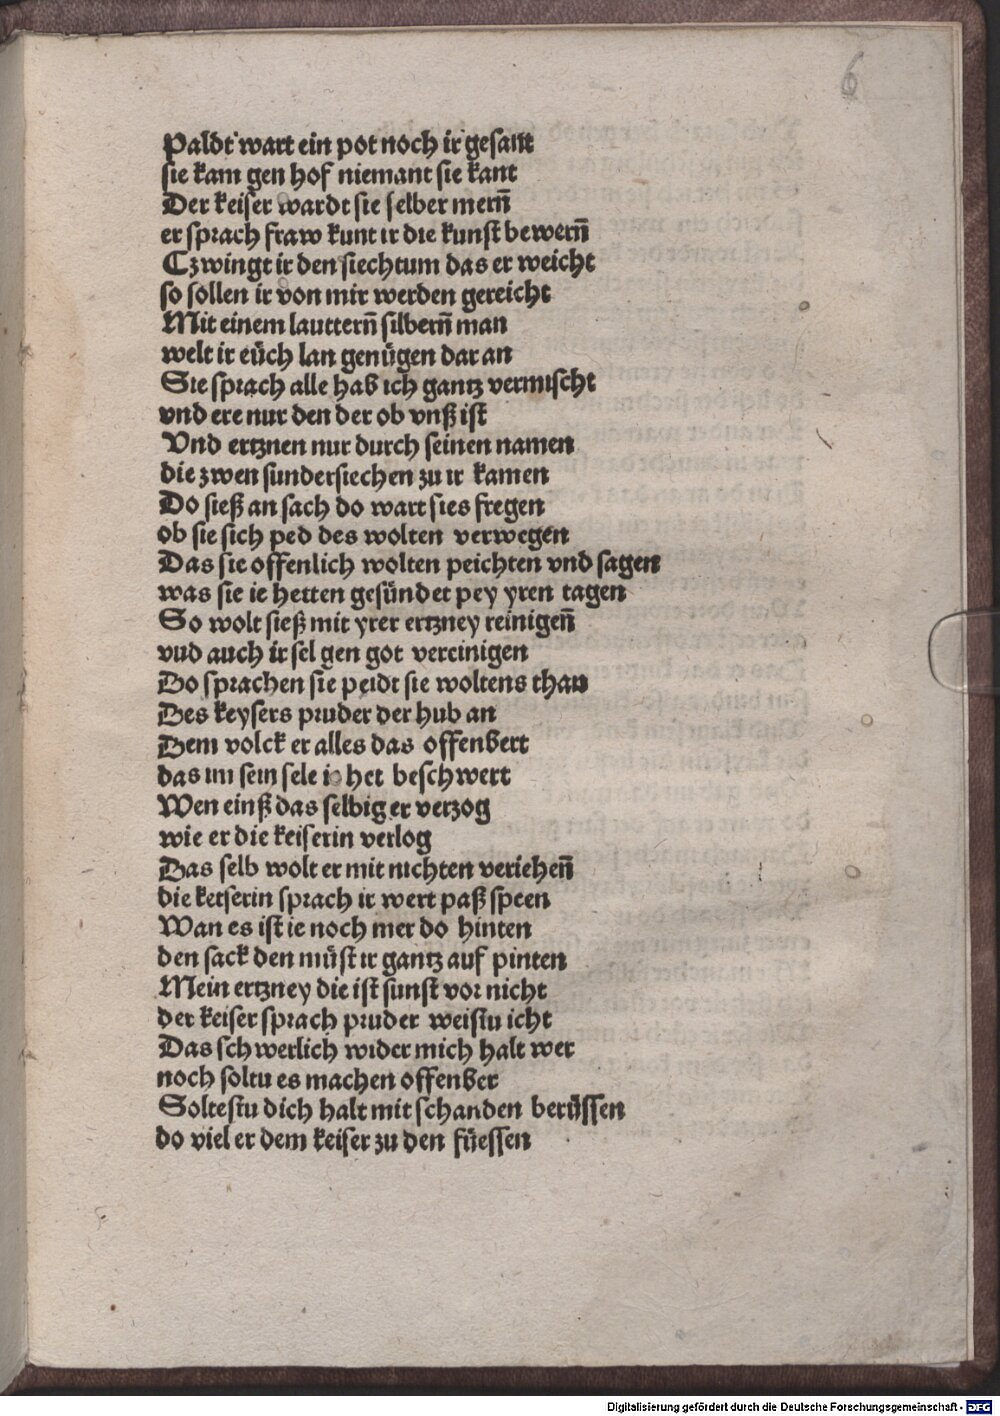 6
Paldt wart ein pot noch ir gesant
sie kam gen hof niemant sie kant
Der keiser wardt sie selber mern̄
er sprach fraw kunt ir die kunst bewern̄
Czwingt ir den siechtum das er weicht
so sollen ir von mir werden gereicht
Mit einem lauttern̄ silbern̄ man
welt ir eüch lan genügen dar an
Sie sprach alle hab ich gantz vermischt
vnd ere nur den der ob vnß ist
Vnd ertznen nur durch seinen namen
die zwen sundersiechen zu ir kamen
Do sieß an sach do wart sies fregen
ob sie sich ped des wolten verwegen
Das sie offenlich wolten peichten vnd sagen
was sie ie hetten gesündet pey yren tagen
So wolt sieß mit yrer ertzney reinigen̄
vud auch ir sel gen got vereinigen
Do sprachen sie peidt sie woltens than
Des keysers pruder der hub an
Dem volck er alles das offenbert
das im sein sele ie het beschwert
Wen einß das selbig er verzog
wie er die keiserin verlog
Das selb wolt er mit nichten veriehen̄
die keiserin sprach ir wert paß speen
Wan es ist ie noch mer do hinten
den sack den müst ir gantz auf pinten
Mein ertzney die ist sunst vor nicht
der keiser sprach pruder weistu icht
Das schwerlich wider mich halt wer
noch soltu es machen offenber
Soltestu dich halt mit schanden berüssen
do viel er dem keiser zu den füessen
Digitalisierung gefördert durch die Deutsche Forschungsgemeinschaft - DFG